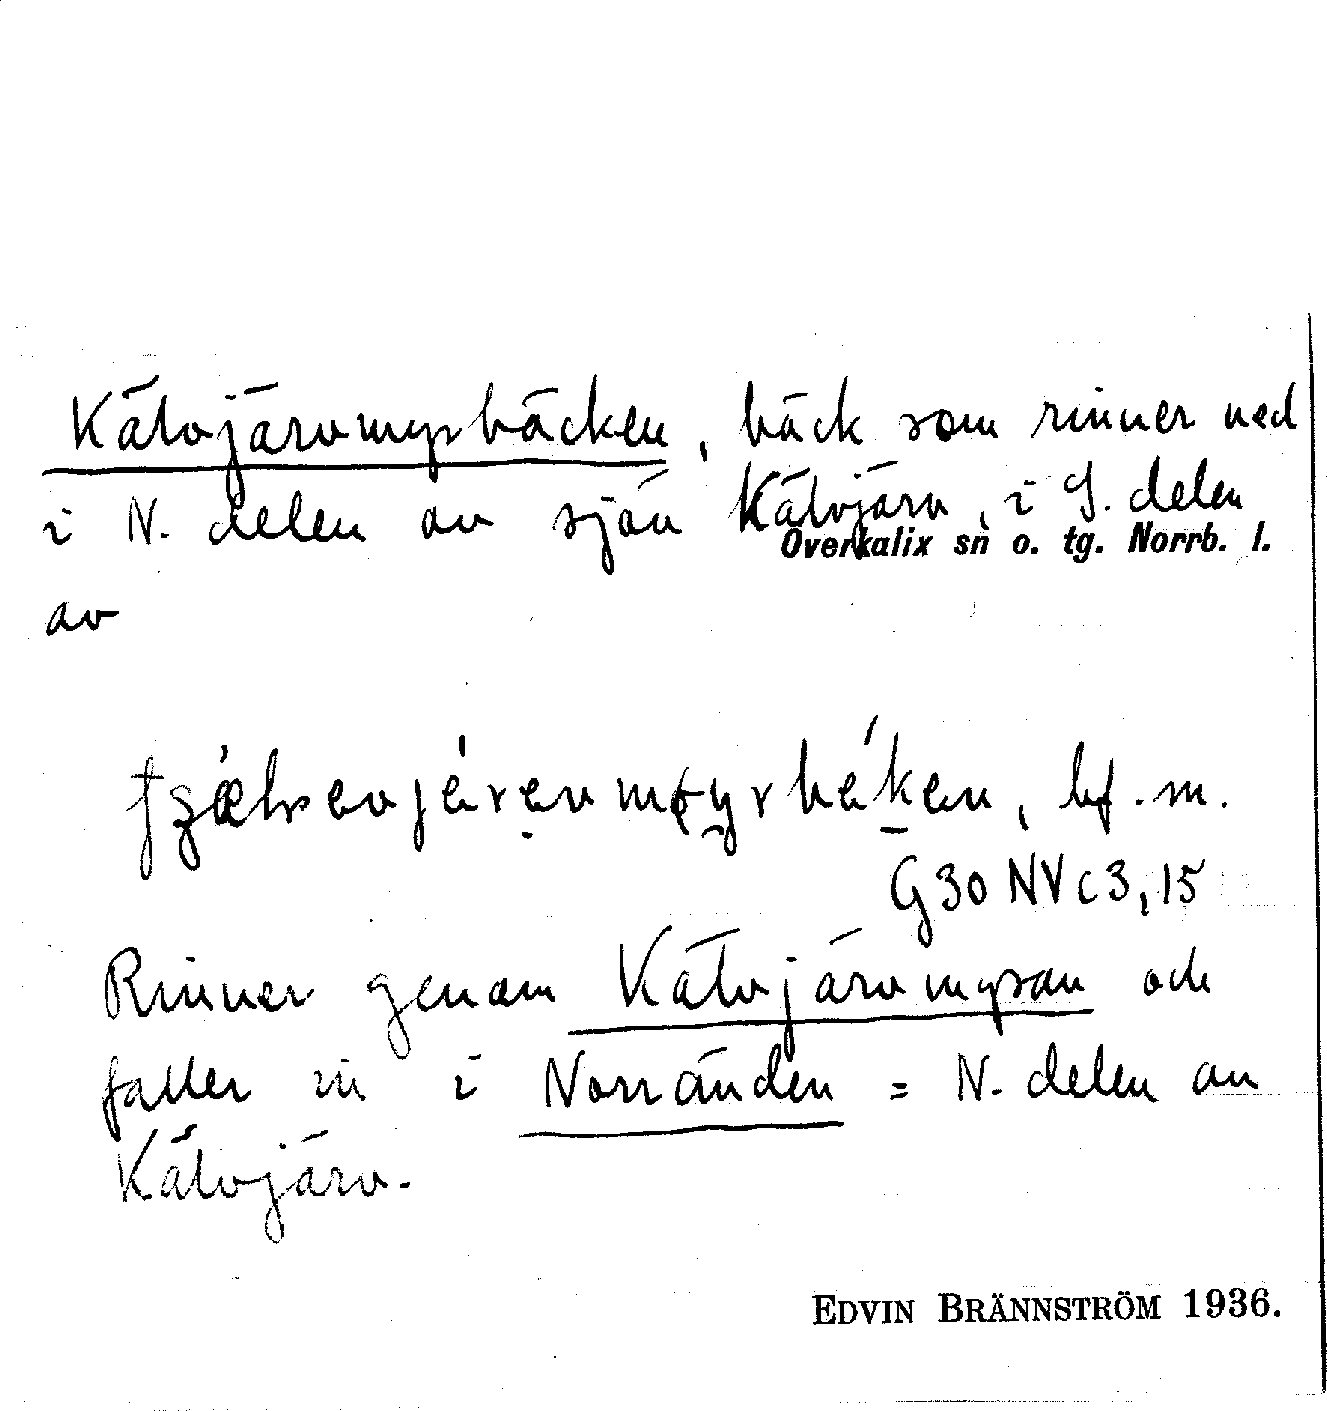 Kälvjärvmyrbäcken, bäck som rinner ned
i N. delen av sjön Kälvjärv, i S. delen
av Överkalix sn o. tg. Norrb. l.
bf. m.
G30 NV c 3, 15
Rinner genom Kälvjärvmyran och
faller in i Norränden = N. delen av
Kälvjärv.
EDVIN BRÄNNSTRÖM 1936.